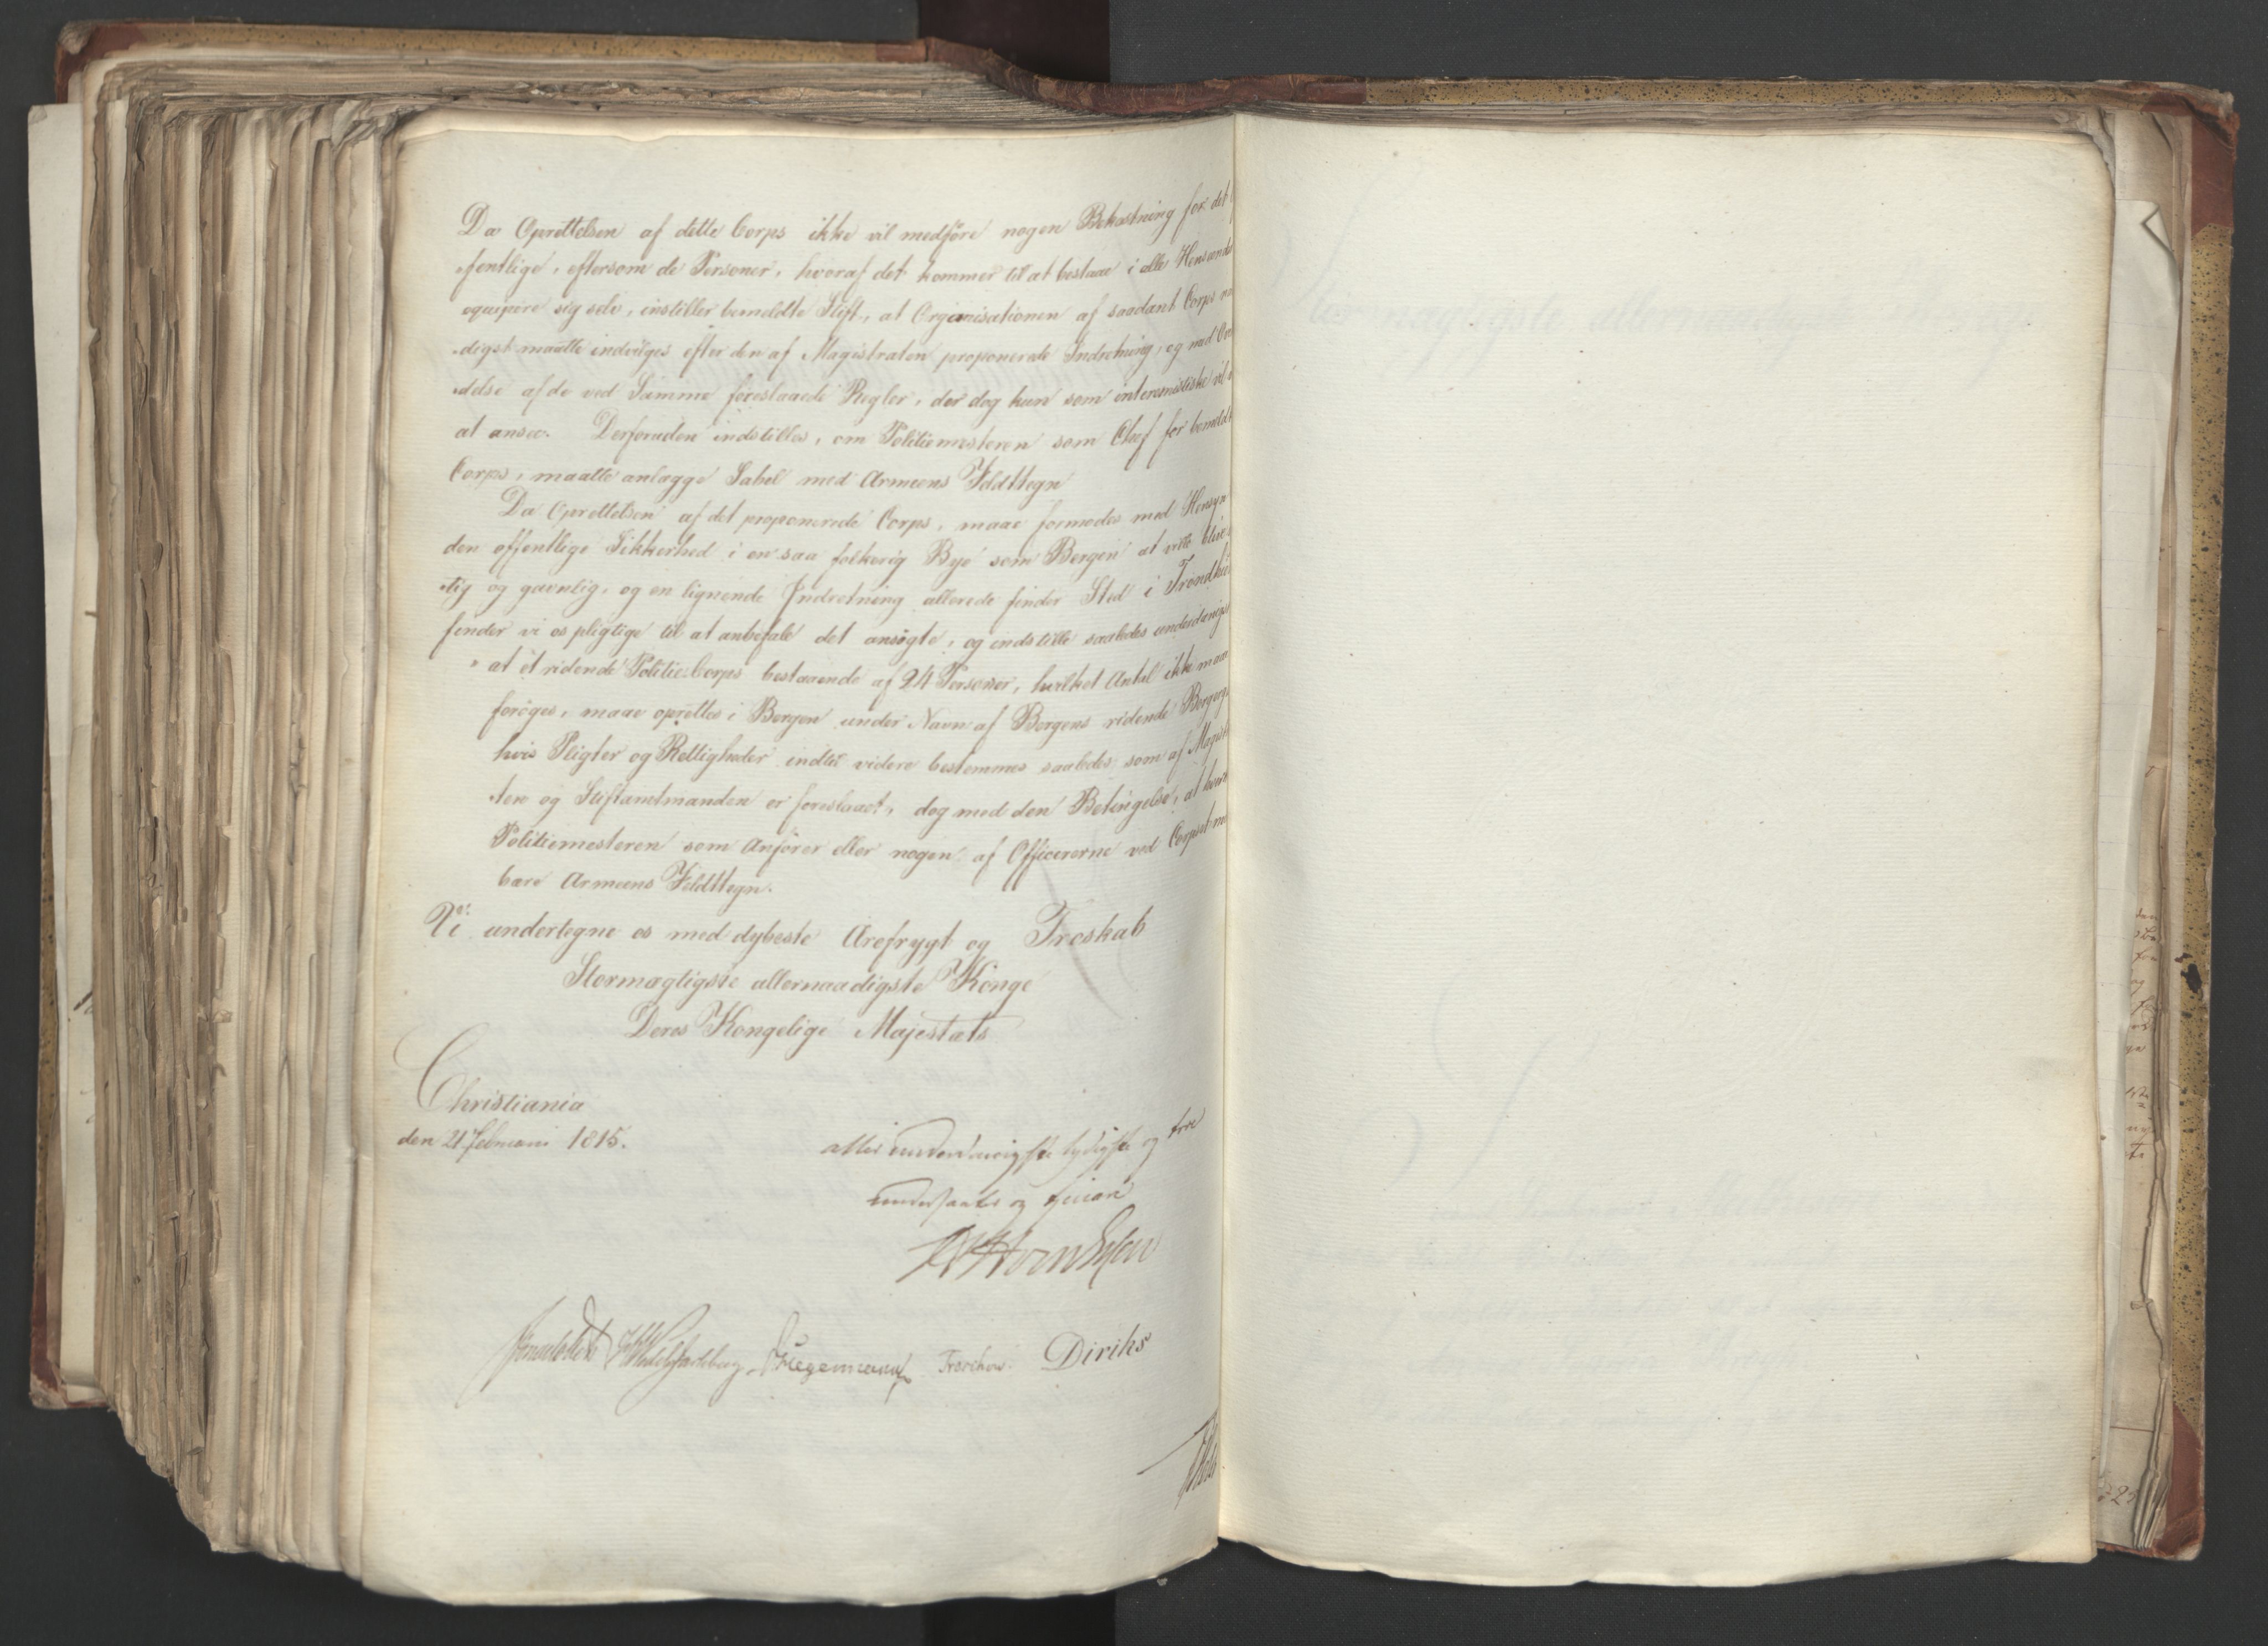 Da Oprettelsen af dette Corps ikke vil medføre nogen Bekostning for det
fentlige, eftersom de Personer, hvoraf det kommer til at bestaae i alle Hens
eqvipere sig selv, instiller bemeldte Stift, at Organisationen af saadant Corps
digst maatte indvilges efter den af Magistraten proponerede Indretning, og med
delse af de ved Samme foreslaaede Regler, der dog kun som interemistiske vil
at ansee. Desforuden indstilles, om Politiemesteren som Chef for bemeldte
Corps, maatte anlægge Sabel med Armeens Feldttegn
Da Oprettelsen af det proponerede Corps, maae formodes med Hensyn
den offentlige Sikkerhed i en saa folkerig Bye som Bergen at ville blive
tig og gavnlig, og en lignende Indretning allerede finder Sted i Trondhie
finder vi os pligtige til at anbefale det ansøgte, og indstille saaledes underdanigst
" at et ridende Politie-Corps bestaaende af 24 Personer, hvilket Antal ikke maae
forøges, maae oprettes i Bergen under Navn af Bergens ridende Borgerg
hvis Pligter og Rettigheder indtil videre bestemmes saaledes som af Magistr
ten og Stiftamtmanden er foreslaaet, dog med den Betingelse, at hver
Politiemesteren som Anfører eller nogen af Officererne ved Corpset m
bære Armeens Feldttegn.
Vi undertegne os med dybeste Ærefrygt og Troskab
Stormægtigste allernaadigste Konge
Deres Kongelige Majestæts
Christiania
den 21 Februari 1815.
allerunderdanigste lydigste og troe
undersaatter og tjenere
Sommerhielm Wedel Jarlsberg Hegermann Treschow. Diriks